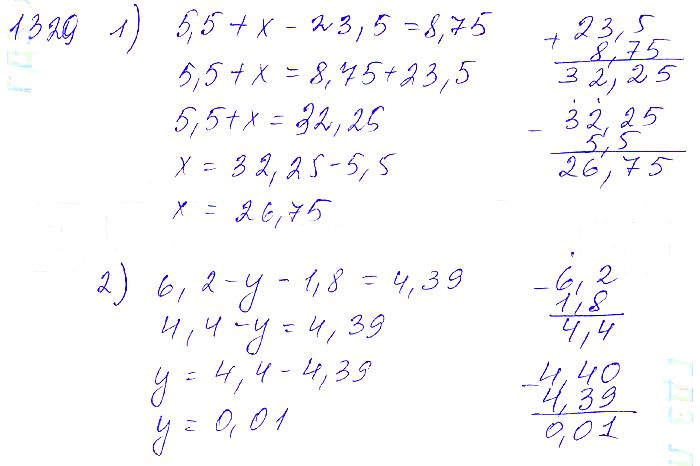 1329 1) 5,5 + x - 23,5 = 8,75
5,5 + x = 8,75 + 23,5
5,5 + x = 32,25
x = 32,25 - 5,5
x = 26,75
+ 23,5
8,75
32,25
- 32,25
5,5
26,75
2) 6,2 - y - 1,8 = 4,39
4,4 - y = 4,39
y = 4,4 - 4,39
y = 0,01
- 6,2
1,8
4,4
- 4,40
4,39
0,01